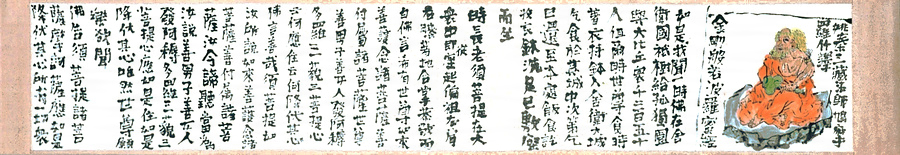 姚秦三藏法師鳩摩
羅什譯
金剛般若波羅蜜經
如是我聞一時佛在舍
衛國祇樹給孤獨園
與大比丘眾千二百五十
人俱爾時世尊食時
著衣持鉢入舍衛大城
乞食於其城中次第乞
已還至本處飯食訖
收衣鉢洗足已敷座
而坐
時長老須菩提在大
眾中即從座起偏袒右肩
右膝著地合掌恭敬而
白佛言希有世尊如來
善護念諸菩薩善
付囑諸菩薩世尊
善男子善女人發阿耨
多羅三藐三菩提心
云何應住云何降伏其心
佛言善哉須菩提如
汝所說如來善護念諸
菩薩善付囑諸菩
薩汝今諦聽當為
汝說善男子善女人
發阿耨多羅三藐三
菩提心應如是住如是
降伏其心唯然世尊願
樂欲聞
佛告須菩提諸菩
薩摩訶薩應如是
降伏其心所有一切眾